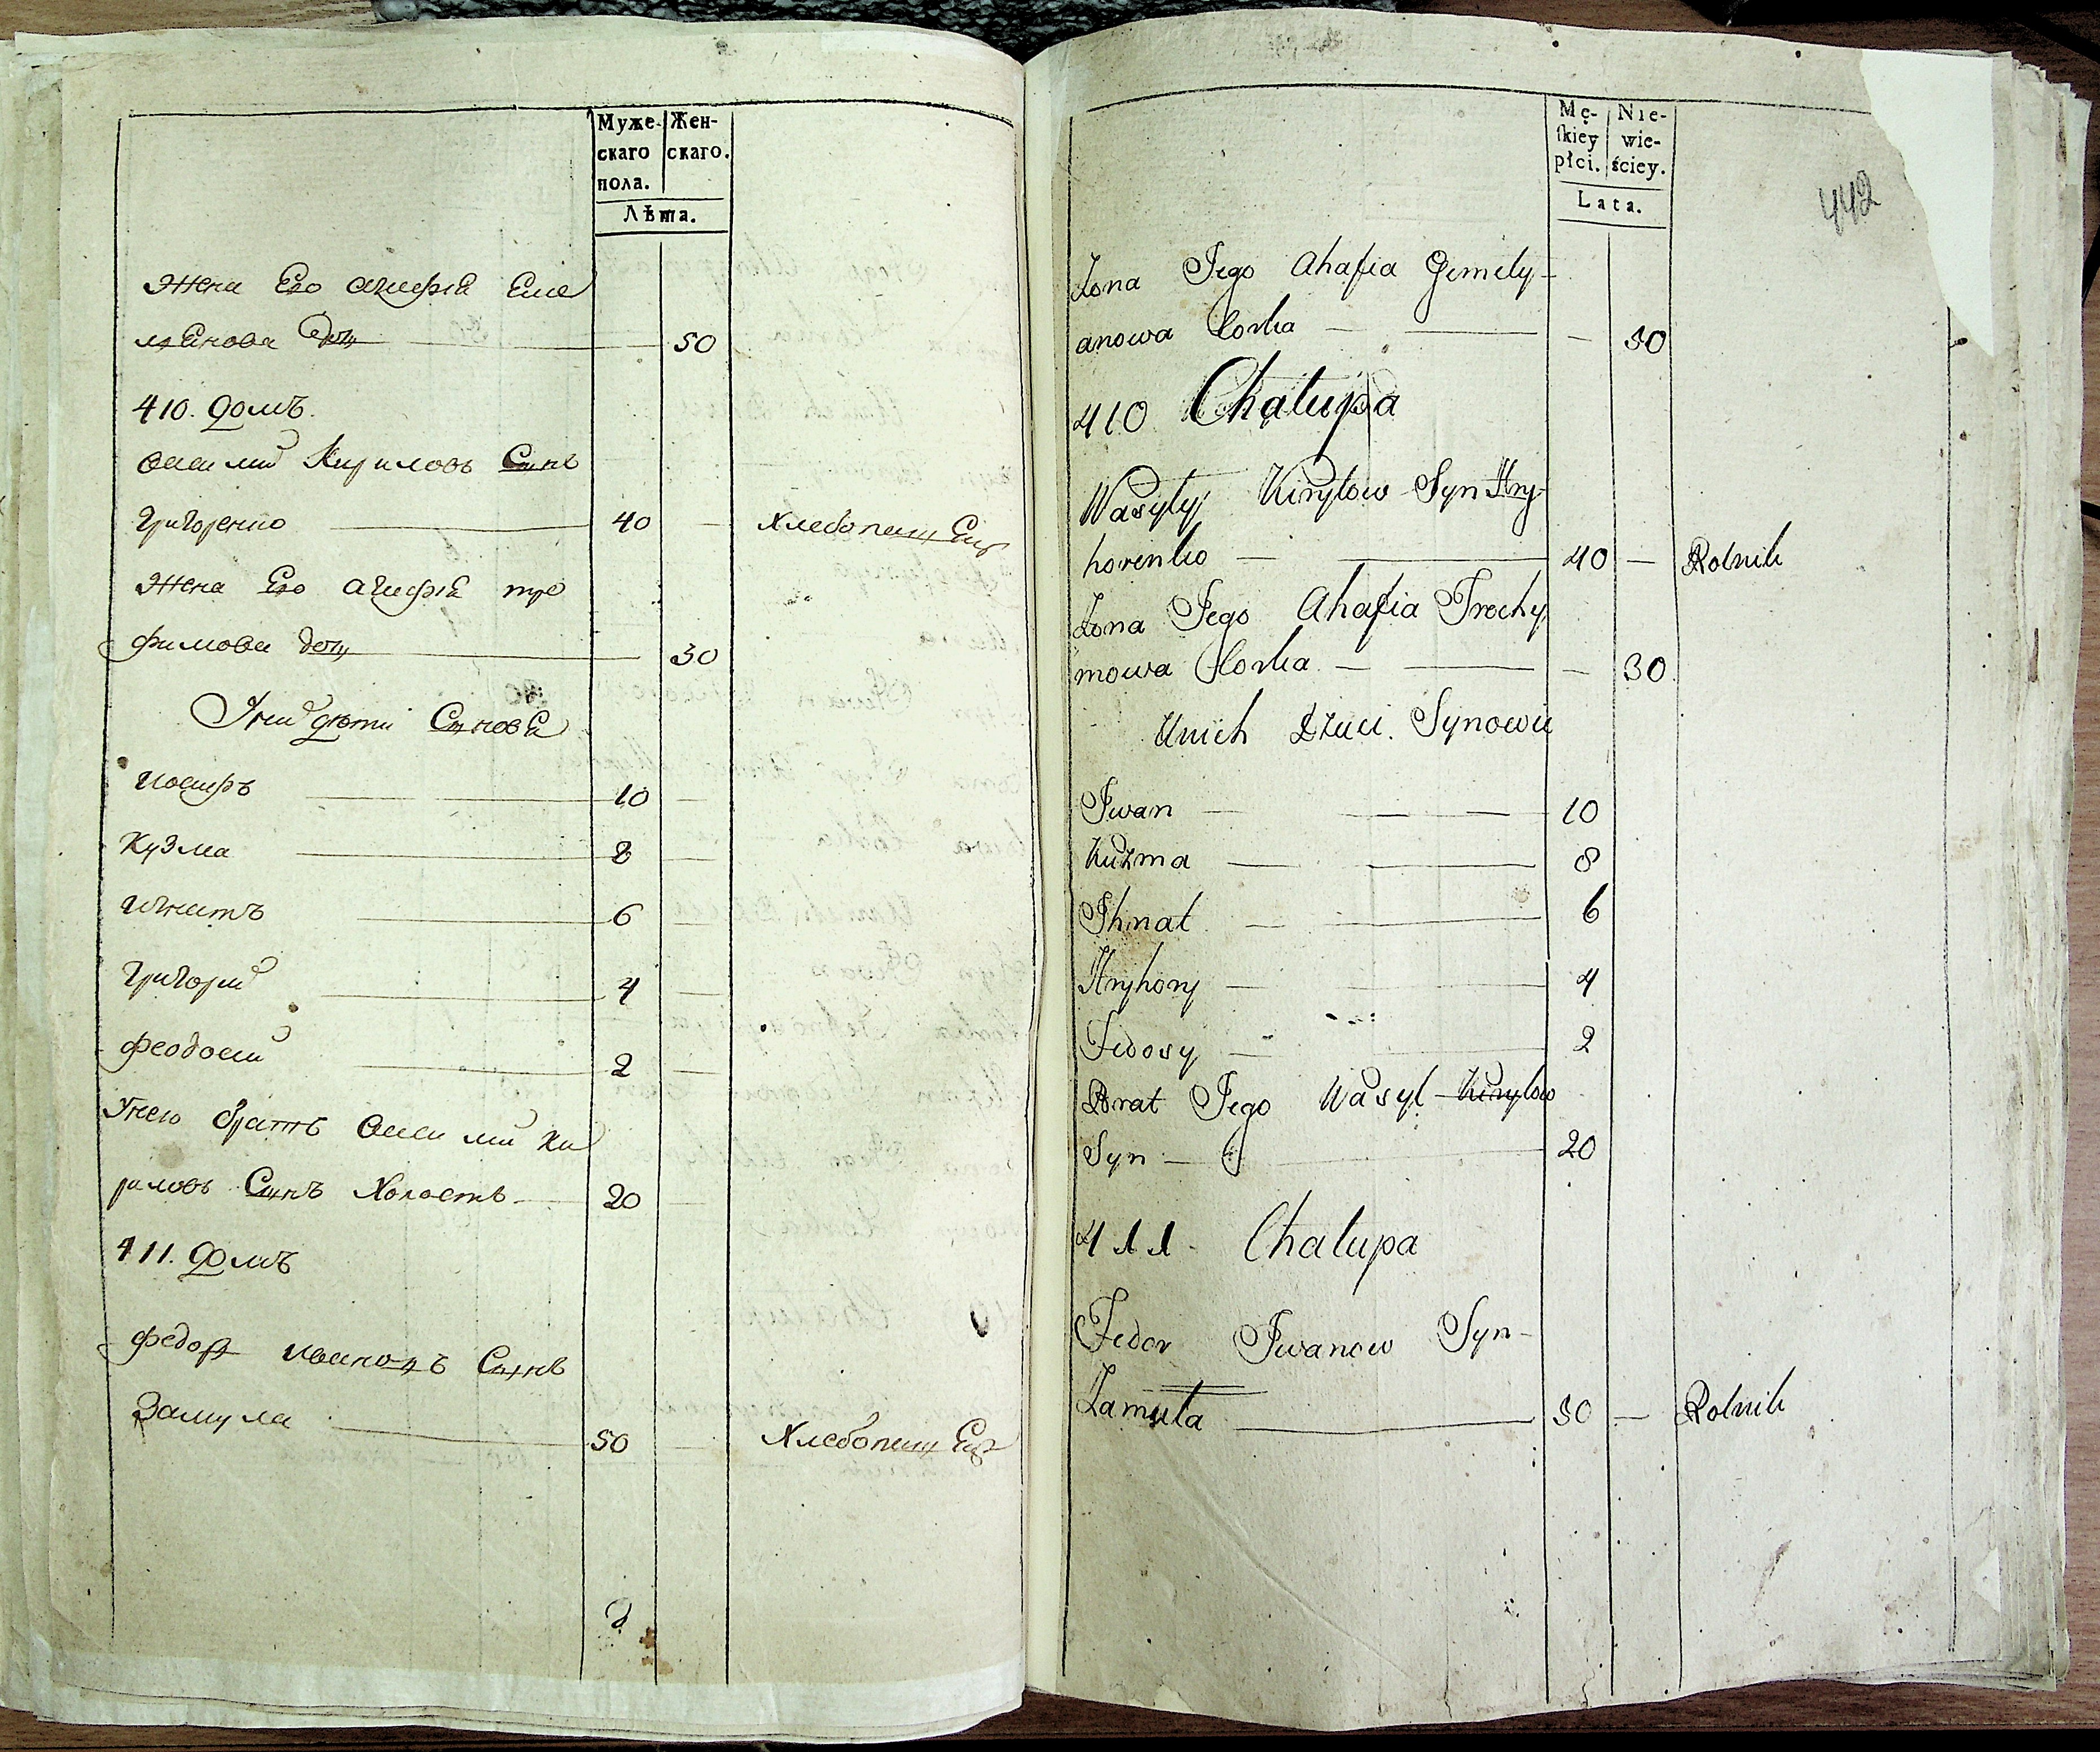 Муже-
скаго
пола.
Жен-
скаго.
Лѣта.
Жена Его Агафиа Еме
лянова дочь 50
410. Домъ.
Василий Кириловъ Сынъ
Григоренко 40 — Хлебопашец
Жена Его Агафиа тро
фимова дочь 30
У них дети Сыновя
Иосифъ 10 —
Кузма 8 —
Игнатъ 6 —
Григорий 4 —
Феодосий 2 —
У него братъ Василий Ки
риловъ Сынъ Холостъ 20 —
411. Домъ
Федор Ивановъ Сынъ
Замула 50 — Хлебопашец
Mę-
ſkiey
płci.
Nie-
wie-
ściey.
Lata.
442
Zona Jego Ahafia Jemily-
anowa Corka — — — 50
410 Chałupa
Wasyly Kiryłow Syn Hry-
horenko — — 40 — Rolnik
Zona Jego Ahafia Trochy
mowa Corka — — — 30
Unich Dzieci Synowie
Iwan — — 10
Kuzma — — 8
Ihnat — — 6
Hryhory — — 4
Fedosy — — 2
Brat Jego Wasyl Kiryłow
Syn — — 20
411. Chałupa
Fedor Iwanow Syn-
Zamuła — 50 — Rolnik